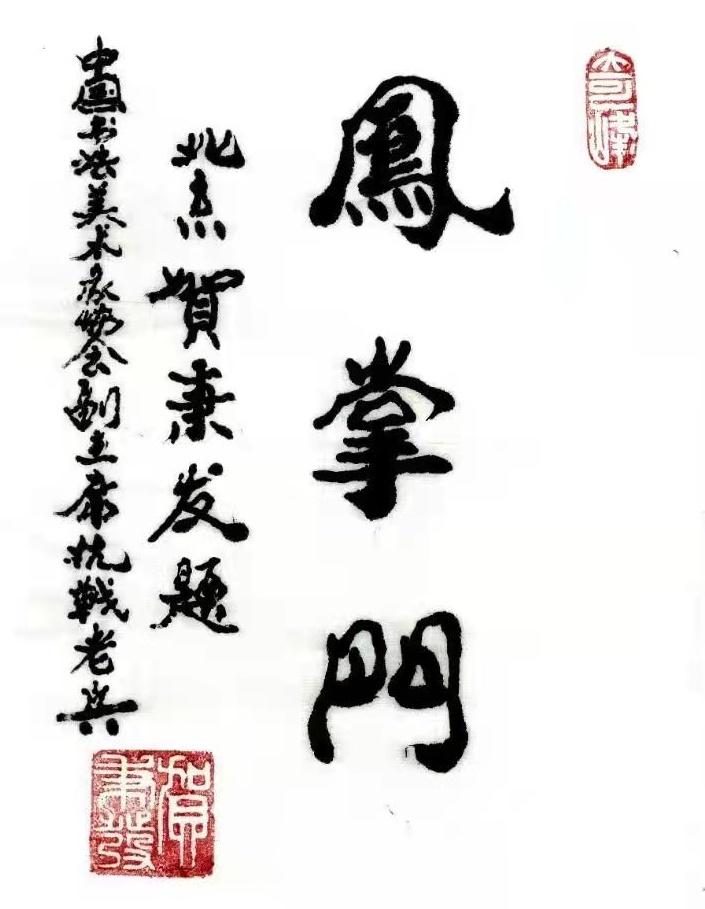 奇峰
鳳掌門
北京賀秉发題
中国书法美术家协会副主席抗戰老兵
賀秉發